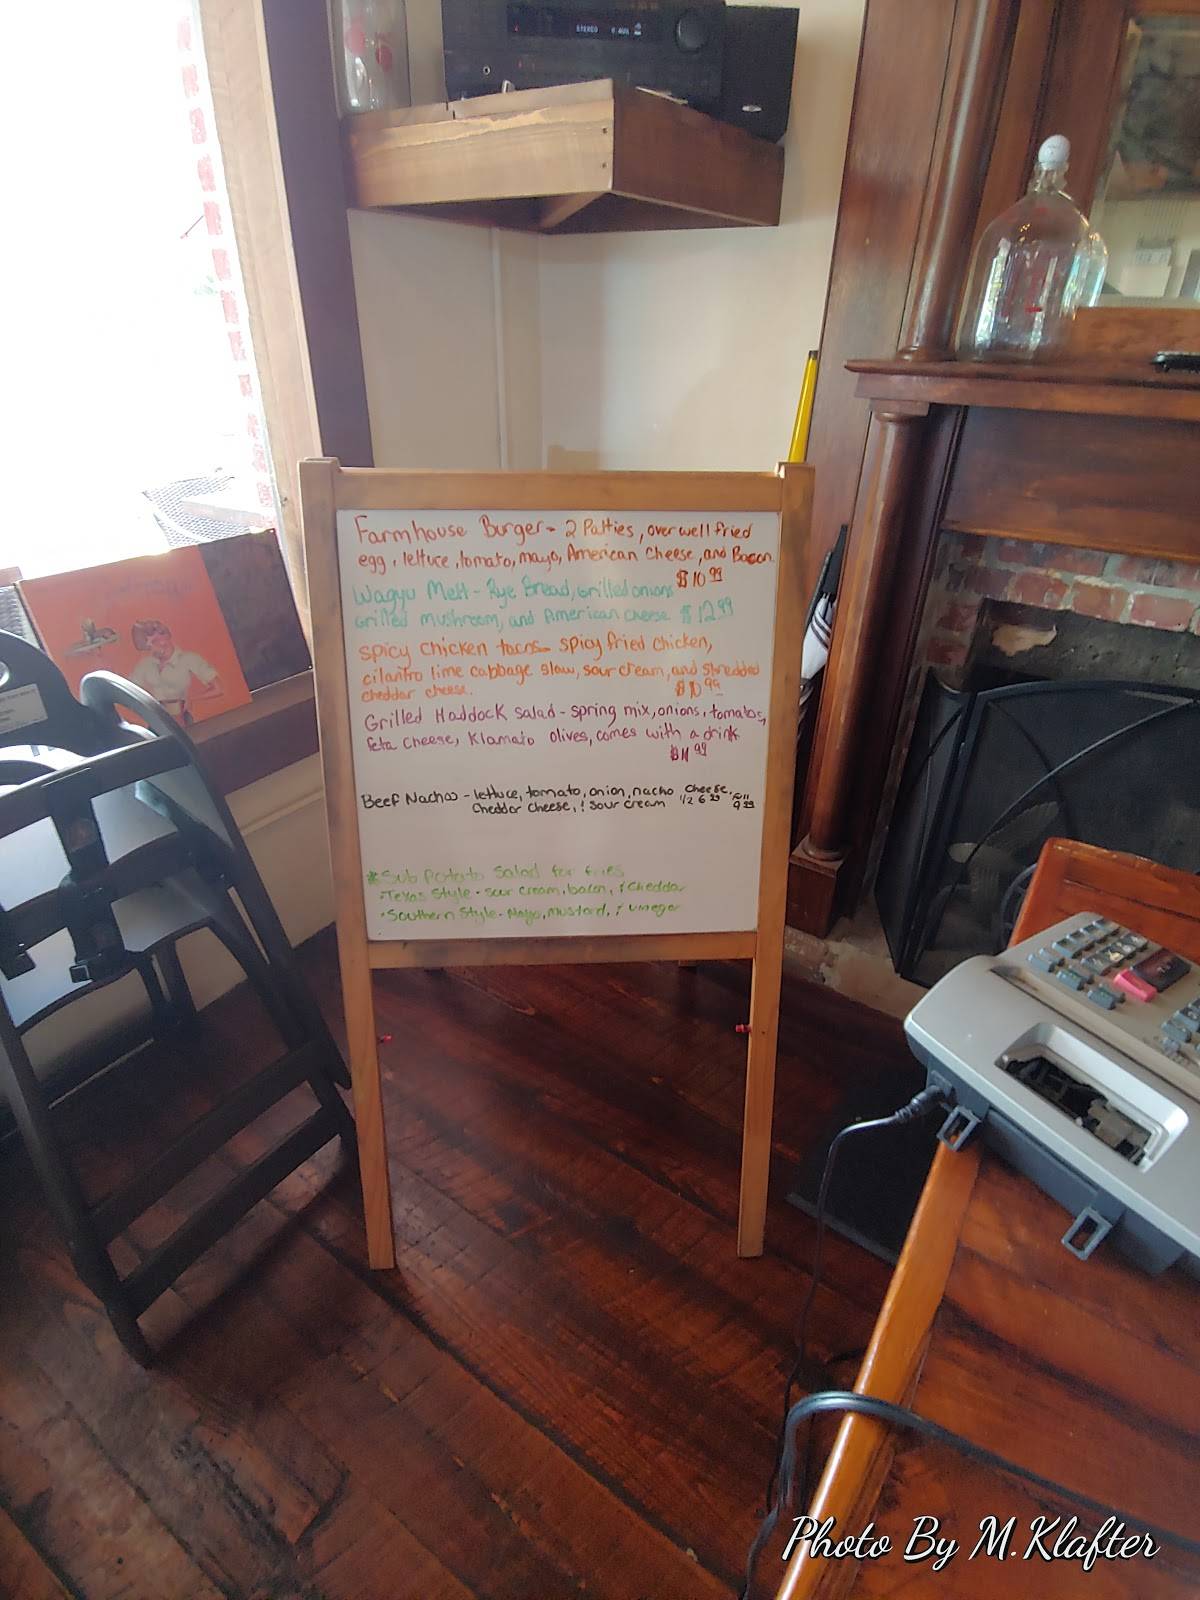 STEREO
Farmhouse Burger - 2 Patties, over well fried
egg, lettuce, tomato, mayo, American Cheese, and Bacon.
$10.99
Wagyu Melt - Rye Bread, Grilled onions
Grilled mushroom, and American cheese $12.99
spicy chicken tacos - spicy fried chicken,
cilantro lime cabbage slaw, sour cream, and shredded
cheddar cheese. $10.99
Grilled Haddock Salad - spring mix, onions, tomatos,
feta cheese, Klamato olives, comes with a drink
$11.99
Beef Nachos - lettuce, tomato, onion, nacho cheese,
Cheddar Cheese, & sour cream 1/2 6.99 Full 9.99
*Sub Potato Salad for fries
•Texas Style - sour cream, bacon, & Cheddar
•Southern Style - Mayo, mustard, & vinegar
Photo By M.Klafter